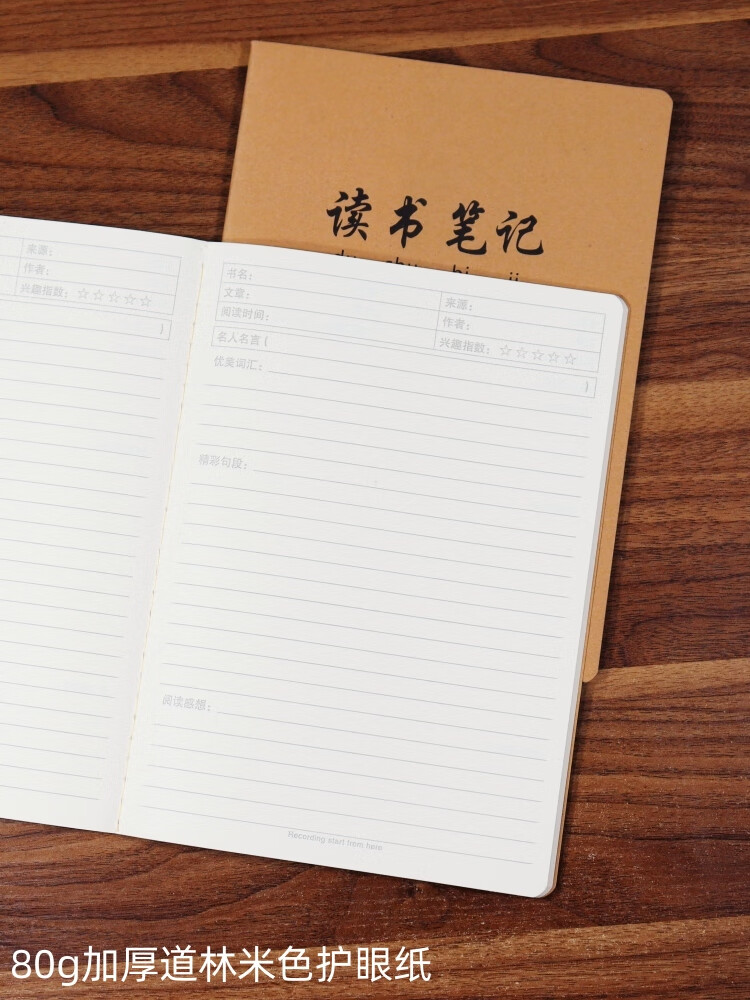 读书笔记
来源:
作者:
兴趣指数: ☆☆☆☆☆
)
书名:
文章:
来源:
阅读时间:
作者:
兴趣指数: ☆☆☆☆☆
名人名言 ( )
优美词汇:
精彩句段:
阅读感想:
Recording start from here
80g加厚道林米色护眼纸